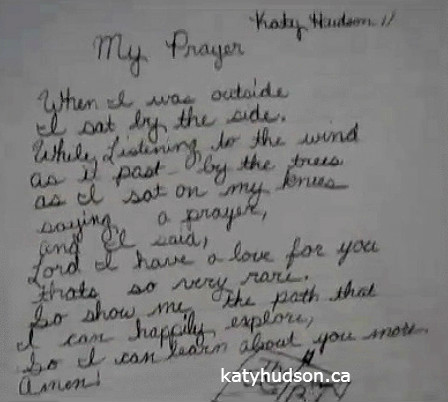 Katy Hudson 11
My Prayer
When I was outside
I sat by the side.
While Listening to the wind
as it past by the trees
as I sat on my knees
saying, a prayer,
and I said,
Lord I have a love for you
thats so very rare.
So show me the path that
I can happily explore,
So I can learn about you more.
Amen!
katyhudson.ca